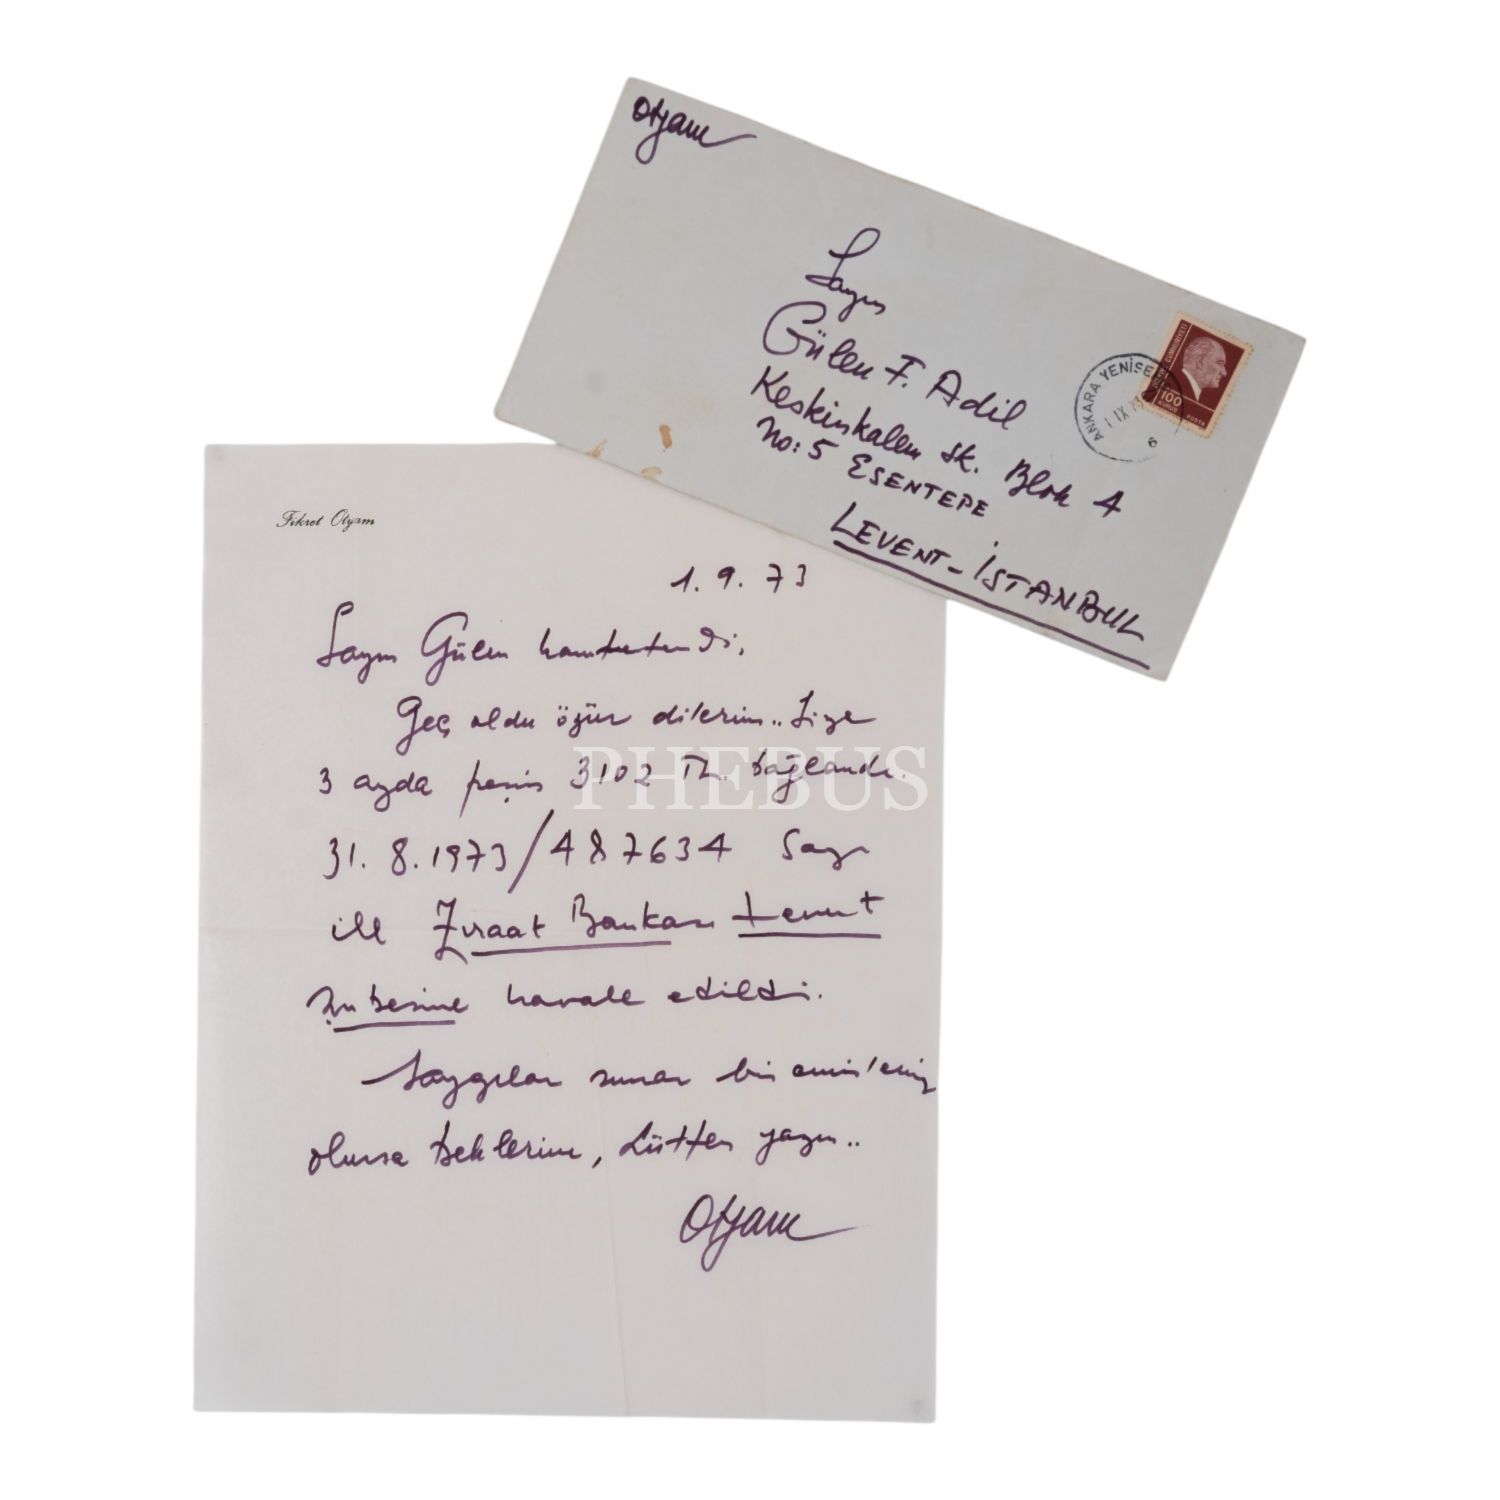 Otyam
Sayın
Gülen F. Adil
Keskinkalem sk. Blok A
No: 5 ESENTEPE
LEVENT - İSTANBUL
ANKARA YENİŞE
1 IX 7
6
CUMHURİYETİ
100
KURUŞ
POSTA
Fikret Otyam
1. 9. 73
Sayın Gülen hanımefendi,
Geç oldu özür dilerim.. Size
3 ayda peşin 3102 TL. bağlandı.
31. 8. 1973/487634 Sayı
ile Ziraat Bankası Levent
Şubesine havale edildi.
Saygılar sunar bir emirleriniz
olursa beklerim, Lütfen yazın..
Otyam
PHEBUS